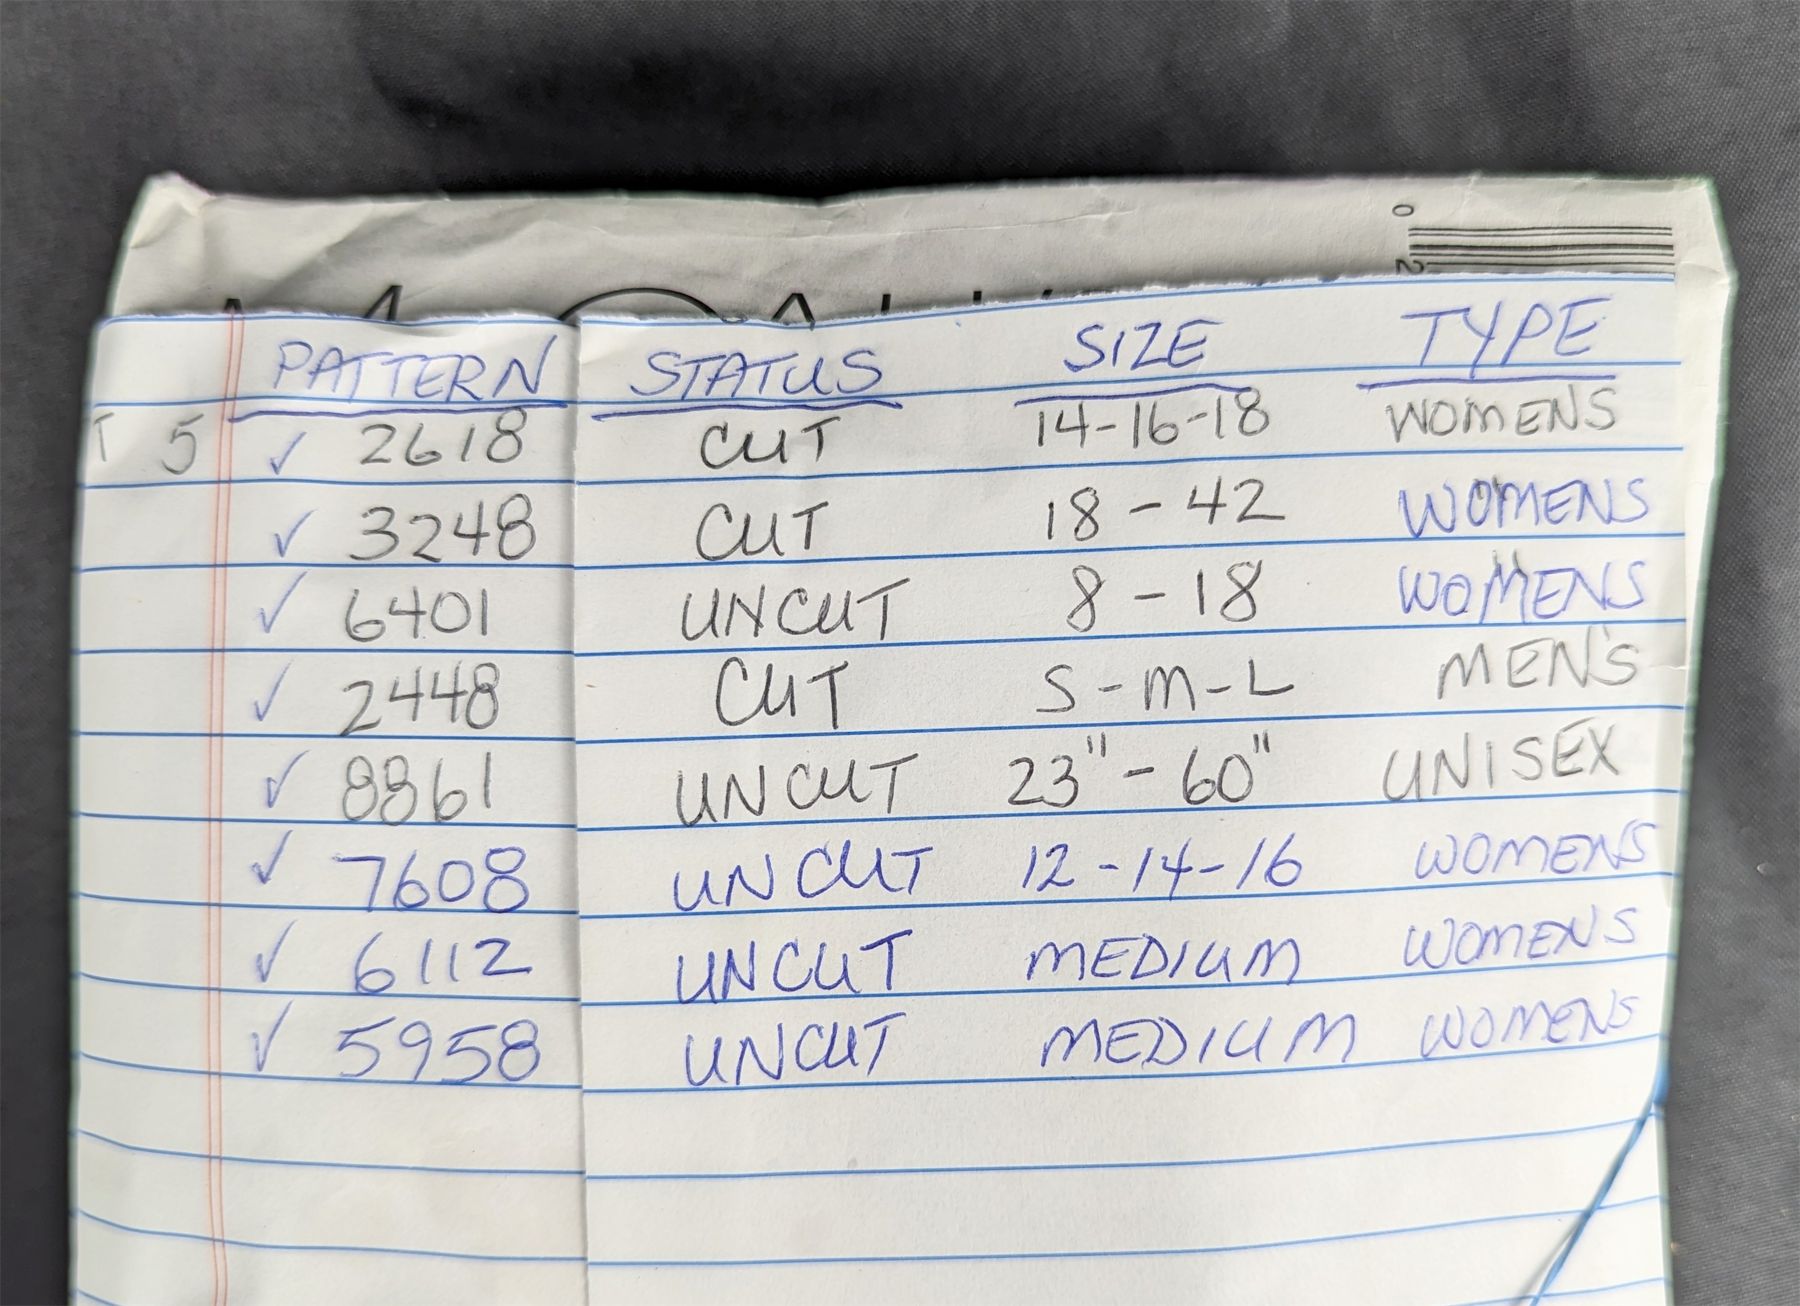 PATTERN STATUS SIZE TYPE
T 5 ✓ 2618 CUT 14-16-18 WOMENS
✓ 3248 CUT 18 - 42 WOMENS
✓ 6401 UNCUT 8 - 18 WOMENS
✓ 2448 CUT S-M-L MEN'S
✓ 8861 UNCUT 23" - 60" UNISEX
✓ 7608 UNCUT 12-14-16 WOMENS
✓ 6112 UNCUT MEDIUM WOMENS
✓ 5958 UNCUT MEDIUM WOMENS